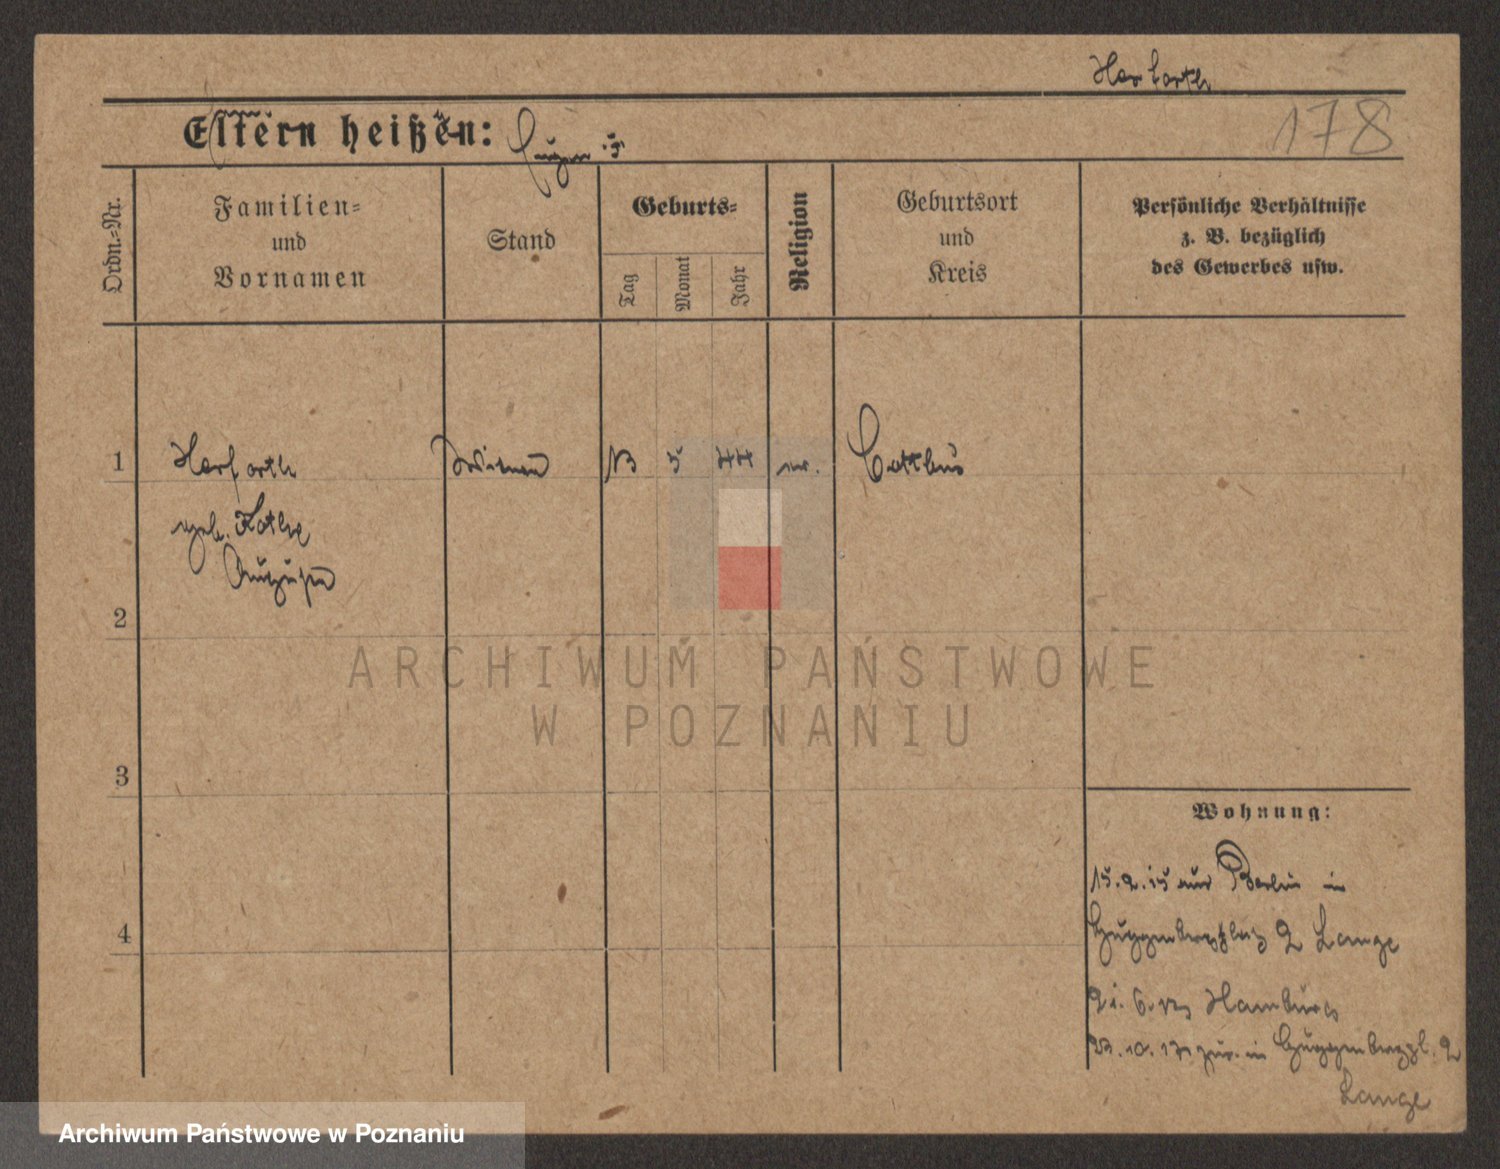 Harforth
178
Eltern heißen:
Ordn.-Nr.
Familien-
und
Vornamen
Stand
Geburts-
Tag
Monat
Jahr
Religion
Geburtsort
und
Kreis
Persönliche Verhältnisse
z. B. bezüglich
des Gewerbes usw.
1 Harforth Witwe 13 5 44 ev. Cottbus
geb. Kothe
Auguste
2
3
4
Wohnung:
15.2.15 aus Berlin in
2 Lange
6. Hamburg
10. 17 zur. in 2
Lange
ARCHIWUM PAŃSTWOWE
W POZNANIU
Archiwum Państwowe w Poznaniu